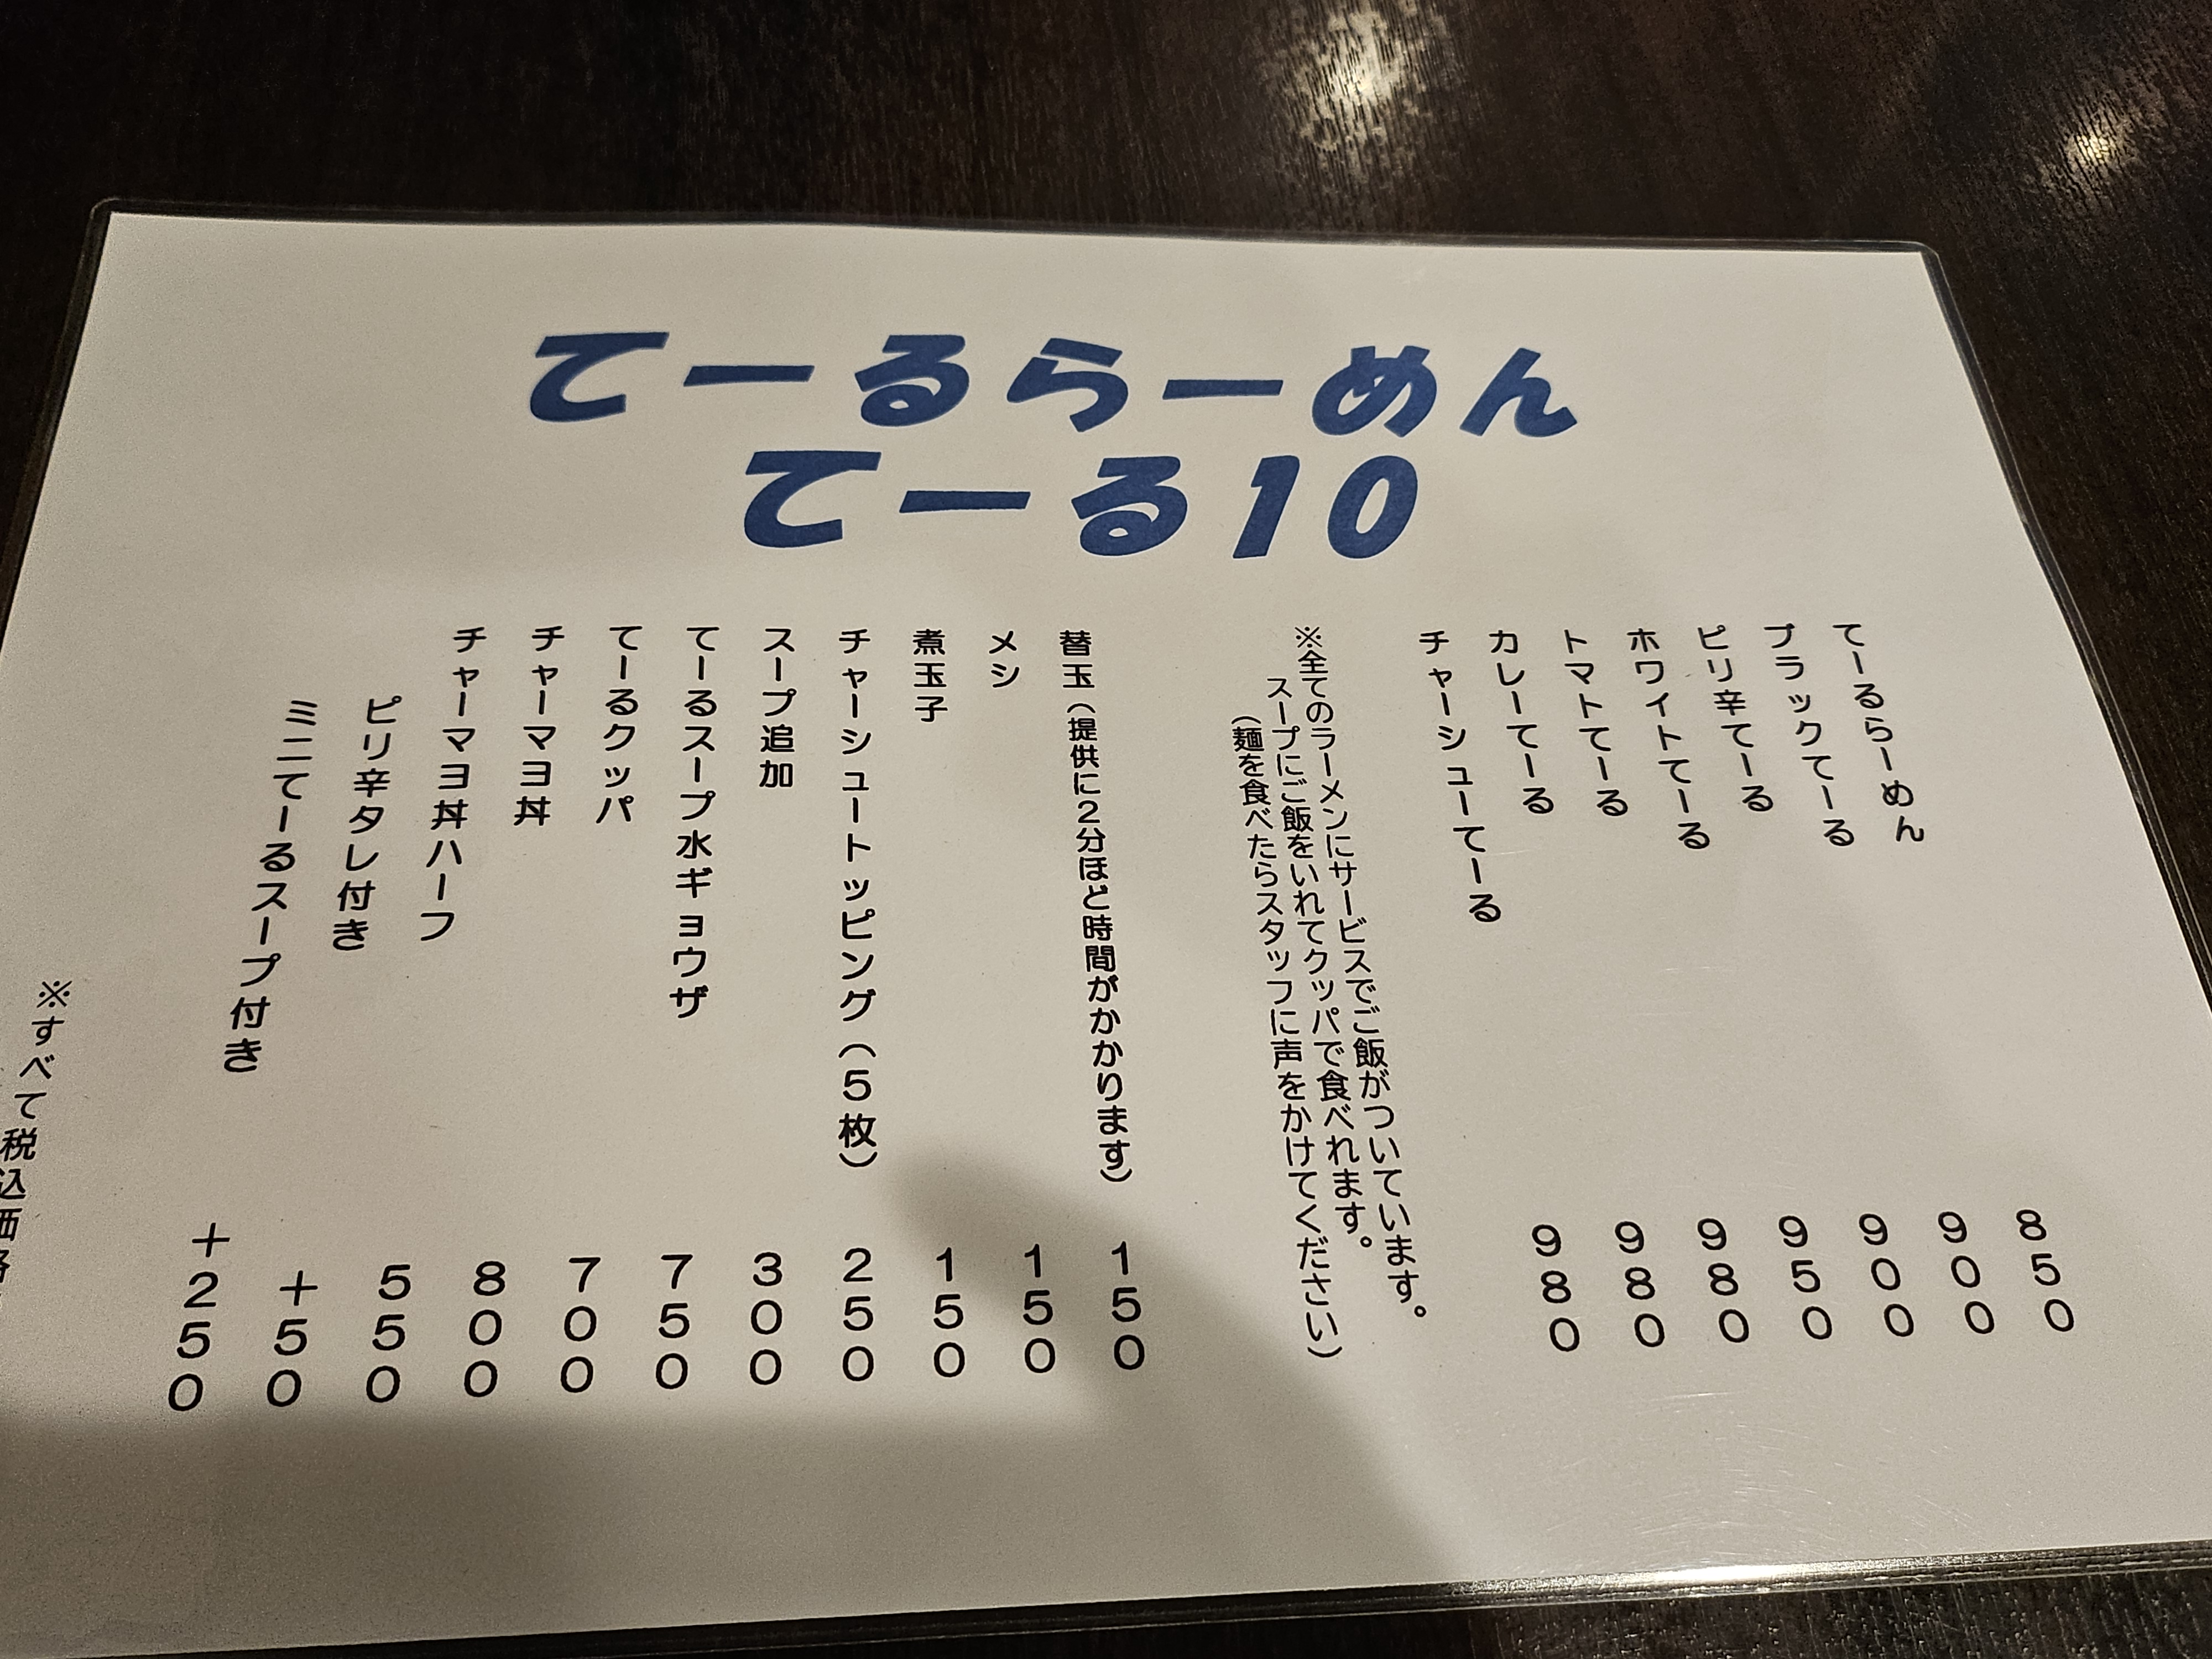 てーるらーめん
てーる10
てーるらーめん 850
ブラックてーる 900
ピリ辛てーる 900
ホワイトてーる 950
トマトてーる 980
カレーてーる 980
チャーシューてーる 980
※全てのラーメンにサービスでご飯がついています。
スープにご飯をいれてクッパで食べれます。
(麺を食べたらスタッフに声をかけてください)
替玉(提供に2分ほど時間がかかります) 150
メシ 150
煮玉子 150
チャーシュートッピング(5枚) 250
スープ追加 300
てーるスープ水ギョウザ 750
てーるクッパ 700
チャーマヨ丼 800
チャーマヨ丼ハーフ 550
ピリ辛タレ付き +50
ミニてーるスープ付き +250
※すべて税込価格